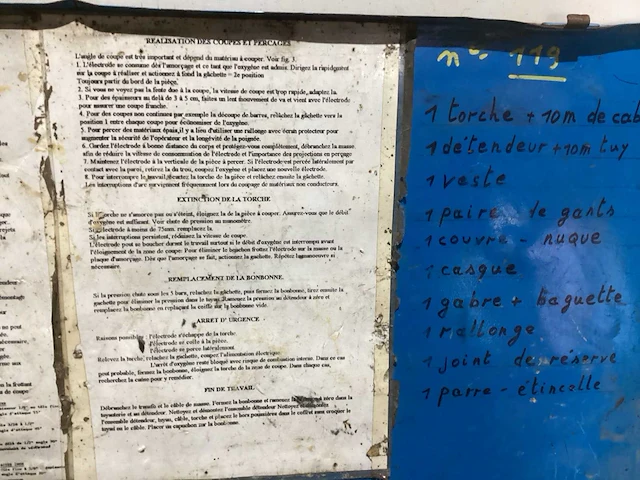 REALISATION DES COUPES ET PERCAGES
L'angle de coupe est très important et dépend du matériau à couper. Voir fig. 3
1. L'électrode se consume dès l'amorçage et ce tant que l'oxygène est admis. Dirigez la rapidement
sur la coupe à réaliser et actionnez à fond la gâchette = 2e position
Toujours partir du bord de la pièce.
2. Si vous ne voyez pas la fente due à la coupe, la vitesse de coupe est trop rapide, adaptez la.
3. Pour des épaisseurs au delà de 3 à 5 cm, faites un lent mouvement de va et vient avec l'électrode
pour assurer une coupe franche.
4. Pour des coupes non continues par exemple la découpe de barres, relâchez la gâchette vers la
position 1 entre chaque coupe pour économiser de l'oxygène.
5. Pour percer des matériaux épais, il y a lieu d'utiliser une rallonge avec écran protecteur pour
augmenter la sécurité de l'opérateur et la longévité de la poignée.
6. Gardez l'électrode à bonne distance du corps et protégez-vous complètement, débranchez la masse
afin de réduire la vitesse de consommation de l'électrode et l'importance des projections en perçage
7. Maintenez l'électrode à la verticale de la pièce à percer. Si l'électrode est percée latéralement par
contact avec la paroi, retirez la du trou, coupez l'oxygène et placez une nouvelle électrode.
8. Pour interrompre le travail, écartez la torche de la pièce et relâchez ensuite la gâchette.
Les interruptions d'arc surviennent fréquemment lors du coupage de matériaux non conducteurs.
EXTINCTION DE LA TORCHE
Si la torche ne s'amorce pas ou s'éteint, éloignez la de la pièce à couper. Assurez-vous que le débit
d'oxygène est suffisant. Voir chute de pression au manomètre.
Si électrode à moins de 75mm, remplacez la.
Si les interruptions persistent, réduisez la vitesse de coupe.
L'électrode peut se boucher durant le travail surtout si le débit d'oxygène est interrompu avant
l'éloignement de la zone de coupe. Pour éliminer le bouchon frottez l'électrode sur la masse ou la
plaque d'amorçage. Dès que l'amorçage se fait, actionnez la gâchette. Répétez la manoeuvre si
nécessaire.
REMPLACEMENT DE LA BONBONNE
Si la pression chute sous les 5 bars, relâchez la gâchette, puis fermez la bonbonne, tirez ensuite la
gachette pour éliminer la pression dans le tuyau. Ramenez la pression au détendeur à zéro et
remplacez la bonbonne en replaçant la coiffe sur la bonbonne vide.
ARRET D' URGENCE
Raisons possibles : l'électrode s'échappe de la torche
l'électrode se colle à la pièce.
l'électrode se perce latéralement.
Relevez la torche, relâchez la gachette, coupez l'alimentation électrique.
L'arrêt d'oxygène reste bloqué avec risque de combustion intense. Dans ce cas
peut probable, fermez la bonbonne, éloignez la torche de la zone de coupe. Dans chaque cas,
recherchez la cause pour y remédier.
FIN DE TRAVAIL
Débranchez le transfo et le câble de masse. Fermez la bonbonne et ramenez la à zéro dans la
tuyauterie et au détendeur. Nettoyez et démontez l'ensemble détendeur
l'ensemble détendeur, tuyau, câble, torche et placez le hors poussières dans le coffret sans croquer le
tuyau ou le câble. Placez un capuchon sur la bonbonne.
n° 119
1 torche + 10m de cab
1 détendeur + 10m tuy
1 veste
1 paire de gants
1 couvre - nuque
1 casque
1 gabre + baguette
1 rallonge
1 joint de réserve
1 parre - étincelle